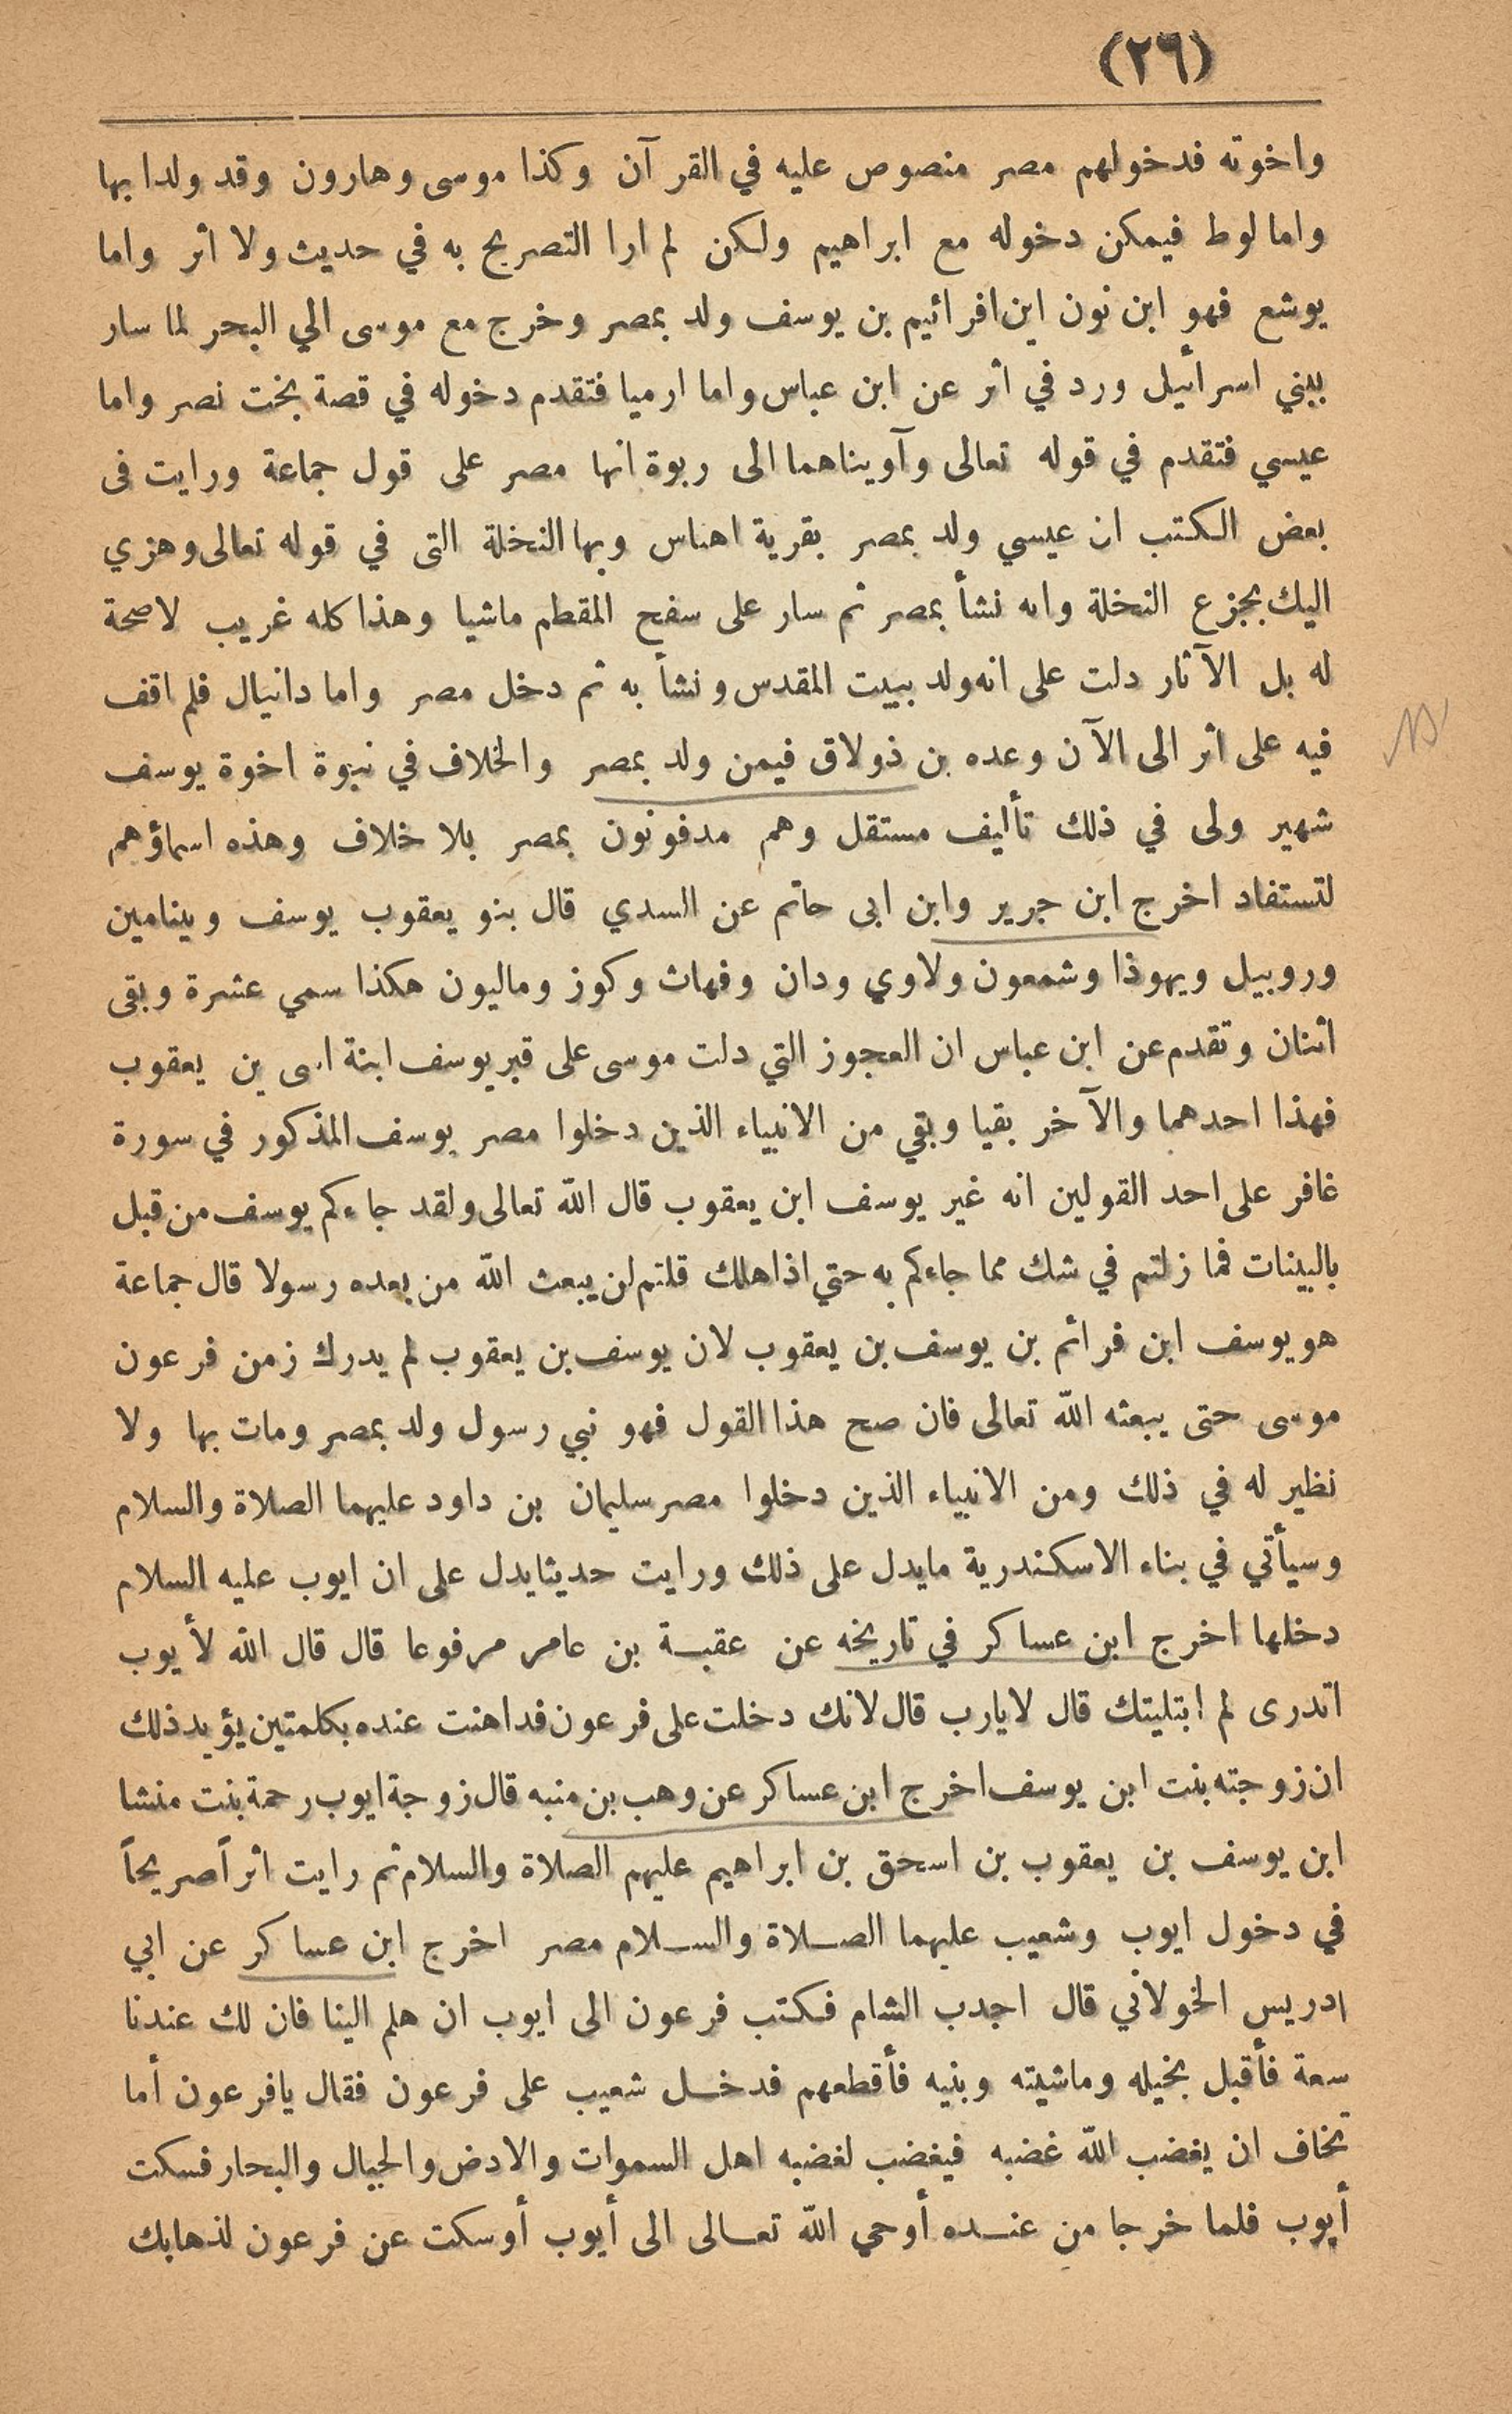 (٢٦)
واخوته فدخولهم مصر منصوص عليه في القرآن وكذا موسى وهارون وقد ولدا بها
واما لوط فيمكن دخوله مع ابراهيم ولكن لم ارا التصريح به في حديث ولا اثر واما
يوشع فهو ابن نون ابن افرائيم بن يوسف ولد بمصر وخرج مع موسى الي البحر لما سار
ببني اسرائيل ورد في اثر عن ابن عباس واما ارميا فتقدم دخوله في قصة بخت نصر واما
عيسي فتقدم في قوله تعالى وآويناهما الى ربوة انها مصر على قول جماعة ورايت فى
بعض الكتب ان عيسي ولد بمصر بقرية اهناس وبها النخلة التى في قوله تعالى وهزي
اليك بجزع النخلة وانه نشأ بمصر ثم سار على سفح المقطم ماشيا وهذا كله غريب لاصحة
له بل الآثار دلت على انه ولد ببيت المقدس ونشأ به ثم دخل مصر واما دانيال فلم اقف
فيه على اثر الى الآن وعده بن ذولاق فيمن ولد بمصر والخلاف في نبوة اخوة يوسف
شهير ولى في ذلك تأليف مستقل وهم مدفونون بمصر بلا خلاف وهذه اسماؤهم
لتستفاد اخرج ابن جرير وابن ابى حاتم عن السدي قال بنو يعقوب يوسف وبنيامين
وروبيل ويهوذا وشمعون ولاوي ودان وفهاث وكوز وماليون هكذا سمي عشرة وبقى
اثنان وتقدم عن ابن عباس ان العجوز التي دلت موسى على قبر يوسف ابنة اسى بن يعقوب
فهذا احدهما والآخر بقيا وبقي من الانبياء الذين دخلوا مصر يوسف المذكور في سورة
غافر على احد القولين انه غير يوسف ابن يعقوب قال الله تعالى ولقد جاءكم يوسف من قبل
بالبينات فما زلتم في شك مما جاءكم به حتي اذا هلك قلتم لن يبعث الله من بعده رسولا قال جماعة
هو يوسف ابن فرائم بن يوسف بن يعقوب لان يوسف بن يعقوب لم يدرك زمن فرعون
موسى حتى يبعثه الله تعالى فان صح هذا القول فهو نبي رسول ولد بمصر ومات بها ولا
نظير له في ذلك ومن الانبياء الذين دخلوا مصر سليمان بن داود عليهما الصلاة والسلام
وسيأتي في بناء الاسكندرية مايدل على ذلك ورايت حديثا يدل على ان ايوب عليه السلام
دخلها اخرج ابن عساكر في تاريخه عن عقبة بن عامر مرفوعا قال قال الله لأيوب
اتدرى لم ابتليتك قال لا يارب قال لانك دخلت على فرعون فداهنت عنده بكلمتين يؤيد ذلك
ان زوجته بنت ابن يوسف اخرج ابن عساكر عن وهب بن منبه قال زوجة ايوب رحمة بنت منشا
ابن يوسف بن يعقوب بن اسحق بن ابراهيم عليهم الصلاة والسلام ثم رايت اثراً صريحاً
في دخول ايوب وشعيب عليهما الصلاة والسلام مصر اخرج ابن عساكر عن ابي
ادريس الخولاني قال اجدب الشام فكتب فرعون الى ايوب ان هلم الينا فان لك عندنا
سعة فأقبل بخيله وماشيته وبنيه فأقطعهم فدخل شعيب على فرعون فقال يافرعون أما
تخاف ان يغضب الله غضبه فيغضب لغضبه اهل السموات والارض والجبال والبحار فسكت
أيوب فلما خرجا من عنده أوحي الله تعالى الى أيوب أوسكت عن فرعون لذهابك